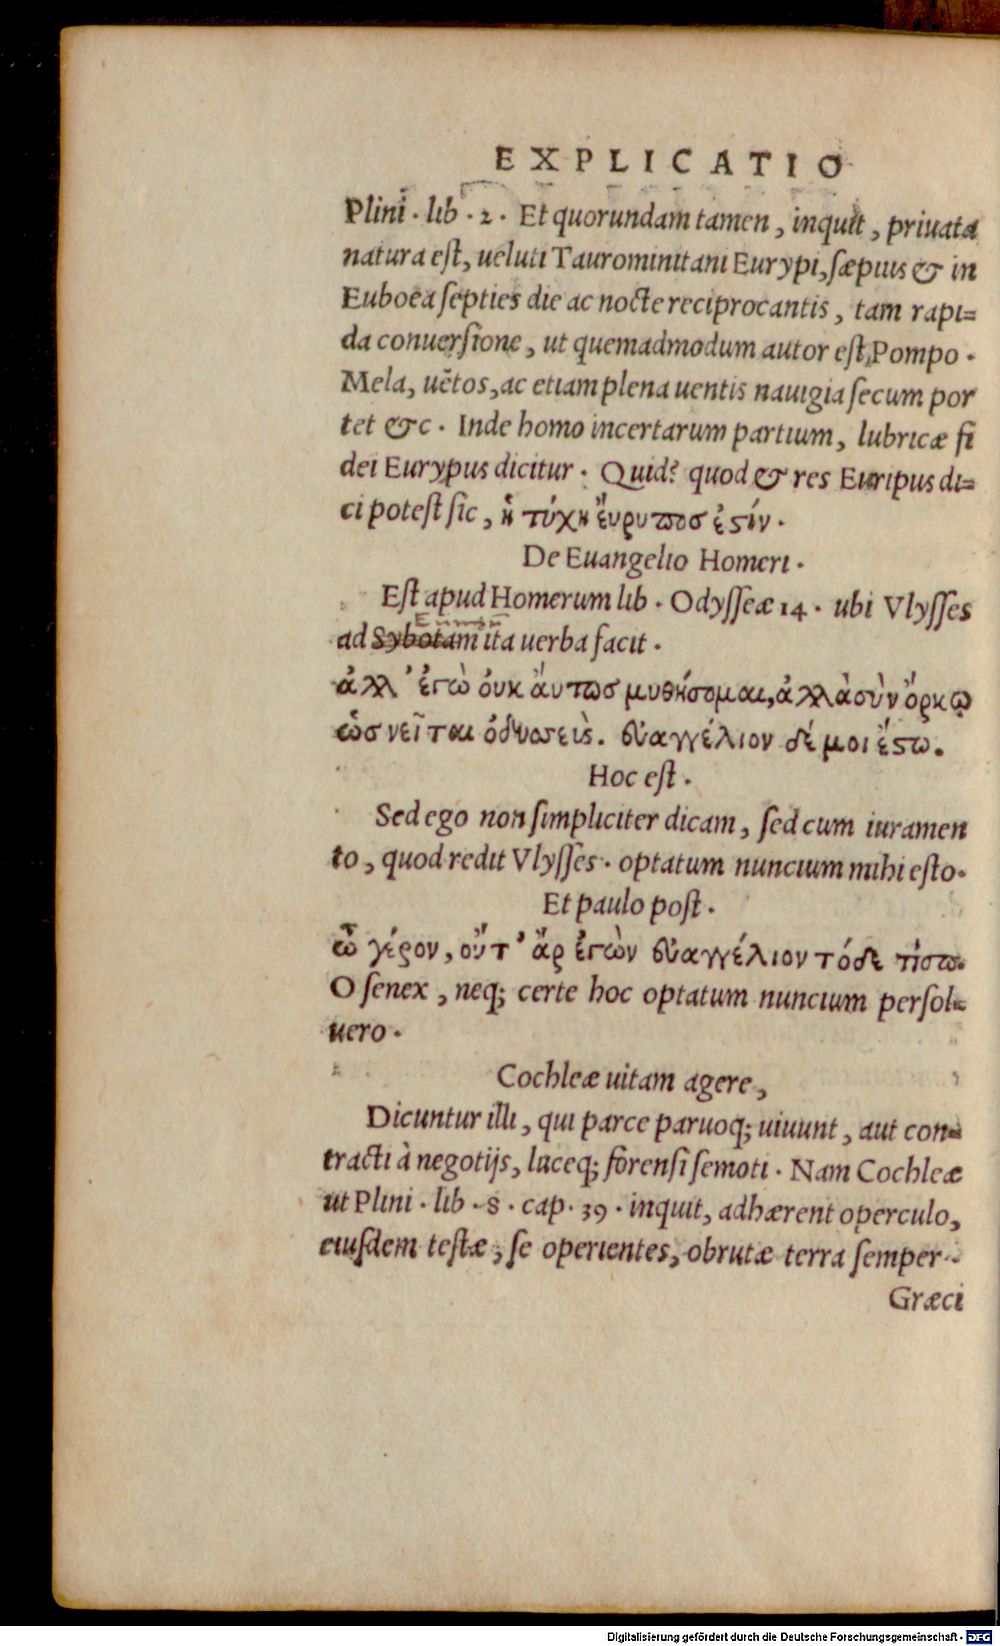 EXPLICATIO
Plinĩ . lib . 2 . Et quorundam tamen , inquit , priuata
natura eſt, ueluti Taurominitani Eurypi, ſæpius & in
Euboea ſepties die ac nocte reciprocantis , tam rapi=
da conuerſione , ut quemadmodum autor eſt Pompo .
Mela, uẽtos, ac etiam plena uentis nauigia ſecum por
tet &c . Inde homo incertarum partium , lubricæ fi
dei Eurypus dicitur . Quid? quod & res Euripus di=
ci poteſt ſic , ἡ τύχη ἔυρυποσ ἐστίν .
De Euangelio Homeri .
Eſt apud Homerum lib . Odyſſeæ 14 . ubi Vlyſſes
ad Sybotam ita uerba facit .
ἀλλ ’ ἐγὼ ὀυκ ἄυτωσ μυθήσομαι, ἀλλὰ σὺν ὅρκῳ
ὡσ νεῖται ὀδυσσεὺς . ἐυαγγέλιον δέ μοι ἔστω.
Hoc eſt .
Sed ego non ſimpliciter dicam , ſed cum iuramen
to , quod redit Vlyſſes . optatum nuncium mihi eſto .
Et paulo poſt .
ὦ γέρον, οὔτ ’ ἄρ ἐγὼν ἐυαγγέλιον τόδε τίσω.
O ſenex , neq; certe hoc optatum nuncium perſol=
uero .
Cochleæ uitam agere ,
Dicuntur illi , qui parce paruoq; uiuunt , aut con=
tracti à negotijs, luceq; forenſi ſemoti . Nam Cochleæ
ut Plini . lib . 8 . cap . 39 . inquit, adhærent operculo,
eiuſdem teſtæ , ſe operientes, obrutæ terra ſemper .
Græci
Digitalisierung gefördert durch die Deutsche Forschungsgemeinschaft - DFG